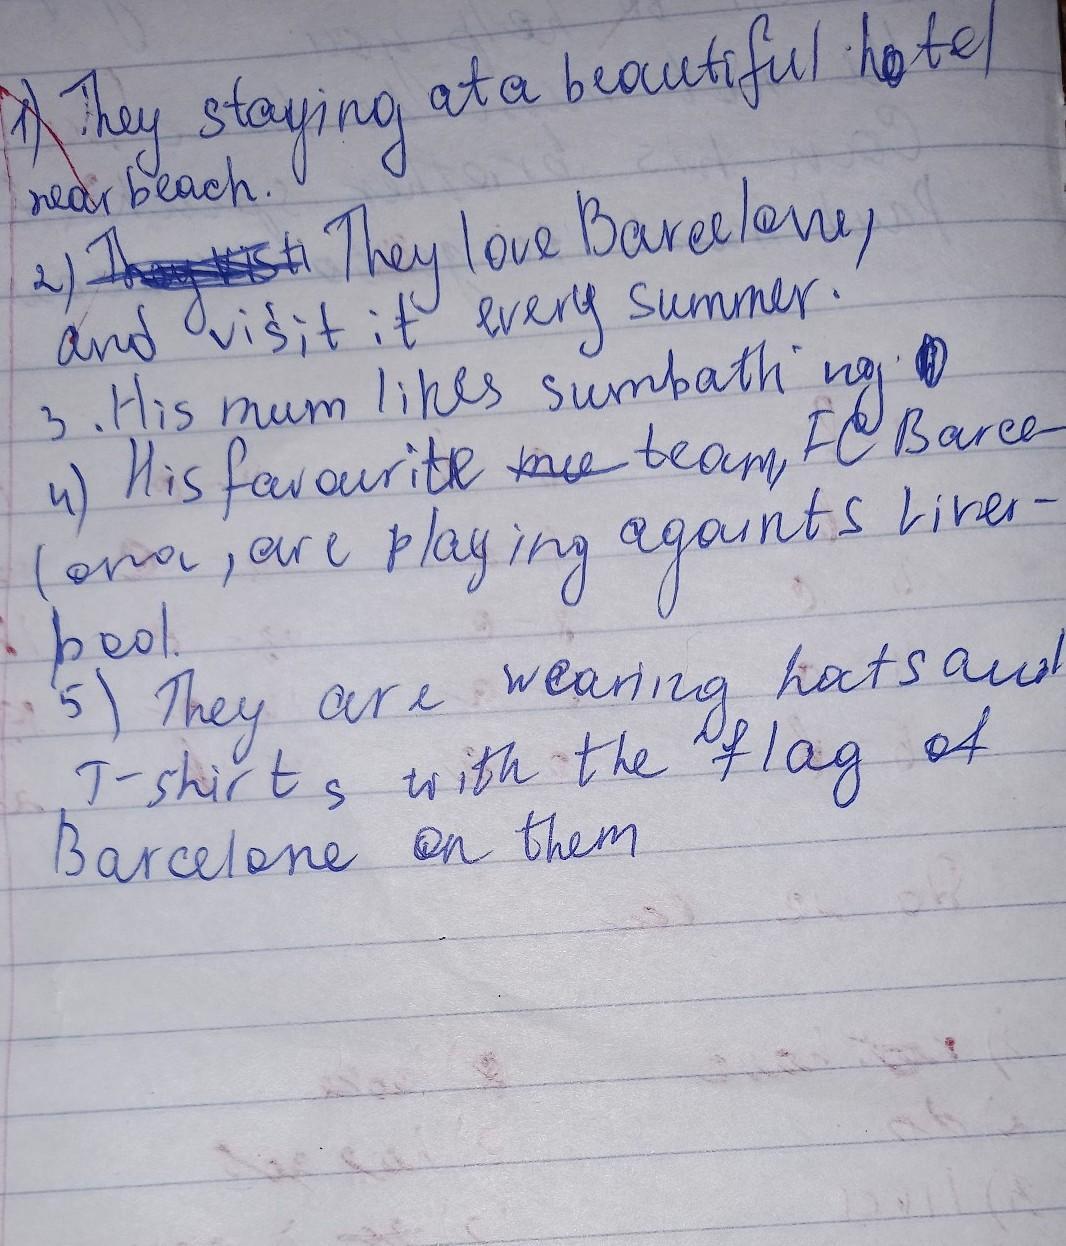 1) They staying at a beautiful hotel
near beach.
2) They love Barcelone,
and visit it every summer.
3. His mum likes sumbathing.
4) His favourite team, FC Barce-
lona, are playing agaunts Liver-
pool.
5) They are wearing hats and
T-shirts with the flag of
Barcelone on them